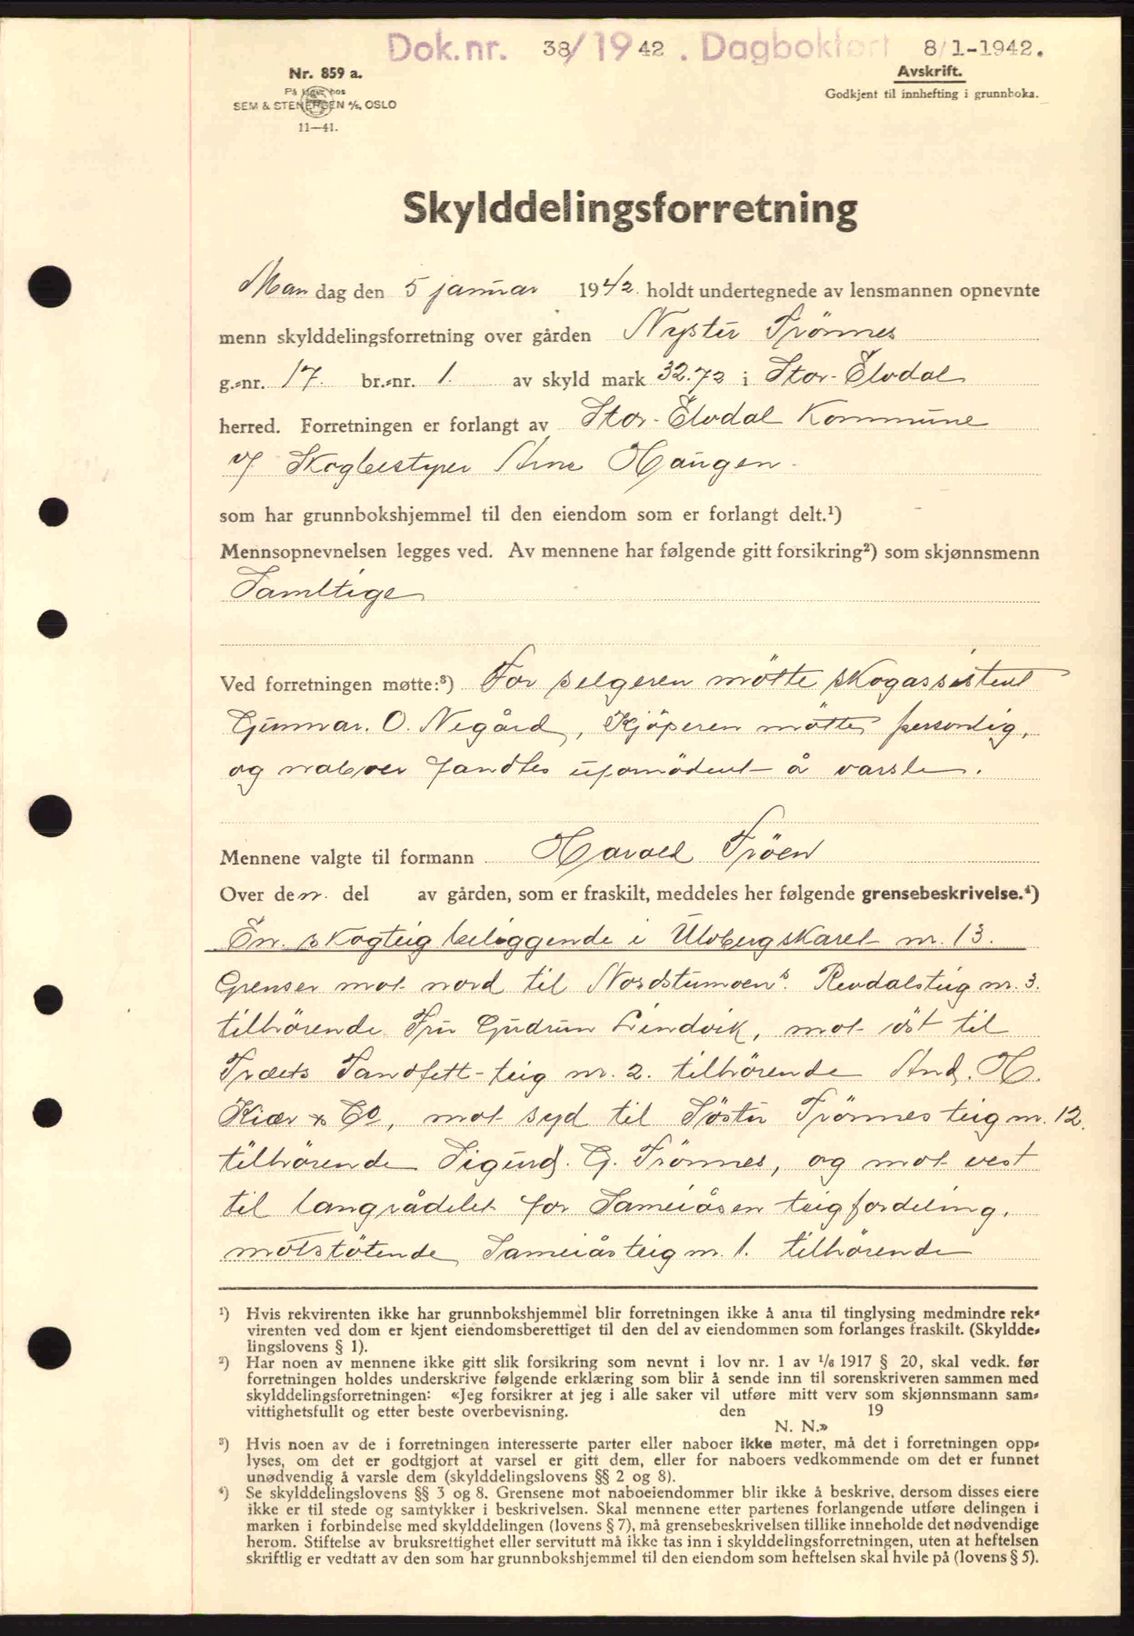 Dok.nr. 38/1942. Dagbokført 8/1-1942.
Nr. 859 a.
På lager hos
SEM & STENERSEN A/S, OSLO
11—41.
Avskrift.
Godkjent til innhefting i grunnboka.
Skylddelingsforretning
Mandag den 5 januar 1942 holdt undertegnede av lensmannen opnevnte
menn skylddelingsforretning over gården Nystu Trönnes
g.-nr. 17. br.-nr. 1. av skyld mark 32.72 i Stor-Elvdal
herred. Forretningen er forlangt av Stor-Elvdal Kommune
v/ Skogbestyrer Arne Haugen
som har grunnbokshjemmel til den eiendom som er forlangt delt.¹)
Mennsopnevnelsen legges ved. Av mennene har følgende gitt forsikring²) som skjønnsmenn
Samltige
Ved forretningen møtte:³) For selgeren mötte skogassistent
Gunnar. O. Negård, Kjöperen mötte personlig,
og naboer fandtes unödent å varsle.
Mennene valgte til formann Harald Tröen
Over den del av gården, som er fraskilt, meddeles her følgende grensebeskrivelse.⁴)
En skogteig beliggende i Ulvbergskaret nr. 13.
Grenser mot nord til Nordstumoens Revdalsteig nr. 3.
tilhörende Fru Gudrun Lindvik, mot öst til
Træets Sandfett-teig nr. 2. tilhörende And. H.
Kiær & Co, mot syd til Söstu Trönnes teig nr. 12.
tilhörende Sigurd. G. Trönnes, og mot vest
til langrådelet for Sameiåsen teigfordeling,
motstötende Sameiåsteig nr. 1. tilhörende
¹) Hvis rekvirenten ikke har grunnbokshjemmel blir forretningen ikke å anta til tinglysing medmindre rek-
virenten ved dom er kjent eiendomsberettiget til den del av eiendommen som forlanges fraskilt. (Skyldde-
lingslovens § 1).
²) Har noen av mennene ikke gitt slik forsikring som nevnt i lov nr. 1 av 1/6 1917 § 20, skal vedk. før
forretningen holdes underskrive følgende erklæring som blir å sende inn til sorenskriveren sammen med
skylddelingsforretningen: «Jeg forsikrer at jeg i alle saker vil utføre mitt verv som skjønnsmann sam-
vittighetsfullt og etter beste overbevisning. den 19
N. N.»
³) Hvis noen av de i forretningen interesserte parter eller naboer ikke møter, må det i forretningen opp-
lyses, om det er godtgjort at varsel er gitt dem, eller for naboers vedkommende om det er funnet
unødvendig å varsle dem (skylddelingslovens §§ 2 og 8).
⁴) Se skylddelingslovens §§ 3 og 8. Grensene mot naboeiendommer blir ikke å beskrive, dersom disses eiere
ikke er til stede og samtykker i beskrivelsen. Skal mennene etter partenes forlangende utføre delingen i
marken i forbindelse med skylddelingen (lovens § 7), må grensebeskrivelsen tillike inneholde det nødvendige
herom. Stiftelse av bruksrettighet eller servitutt må ikke tas inn i skylddelingsforretningen, uten at heftelsen
skriftlig er vedtatt av den som har grunnbokshjemmel til den eiendom som heftelsen skal hvile på (lovens § 5).